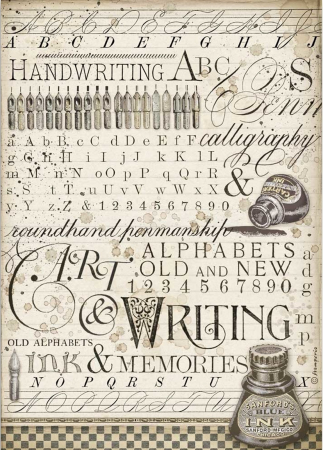 A B C D E F G H I J
HANDWRITING ABC'S
Penn
calligraphy
a A b B c C d D e E f F
g G h H i I j J k K l L
M m N n O o P p Q q R r
s S t T u U v V w W x X
y Y z Z & 1234567890
&
roundhand penmanship
ALPHABETS
OLD AND NEW
1234567890
ART
& WRITING
OLD ALPHABETS
ink & MEMORIES
N O P Q R S T U X
a
d
g
m
p
SANFORD'S
BLUE
INK
SANFORD MFG. CO.
CHICAGO
© Stamperia